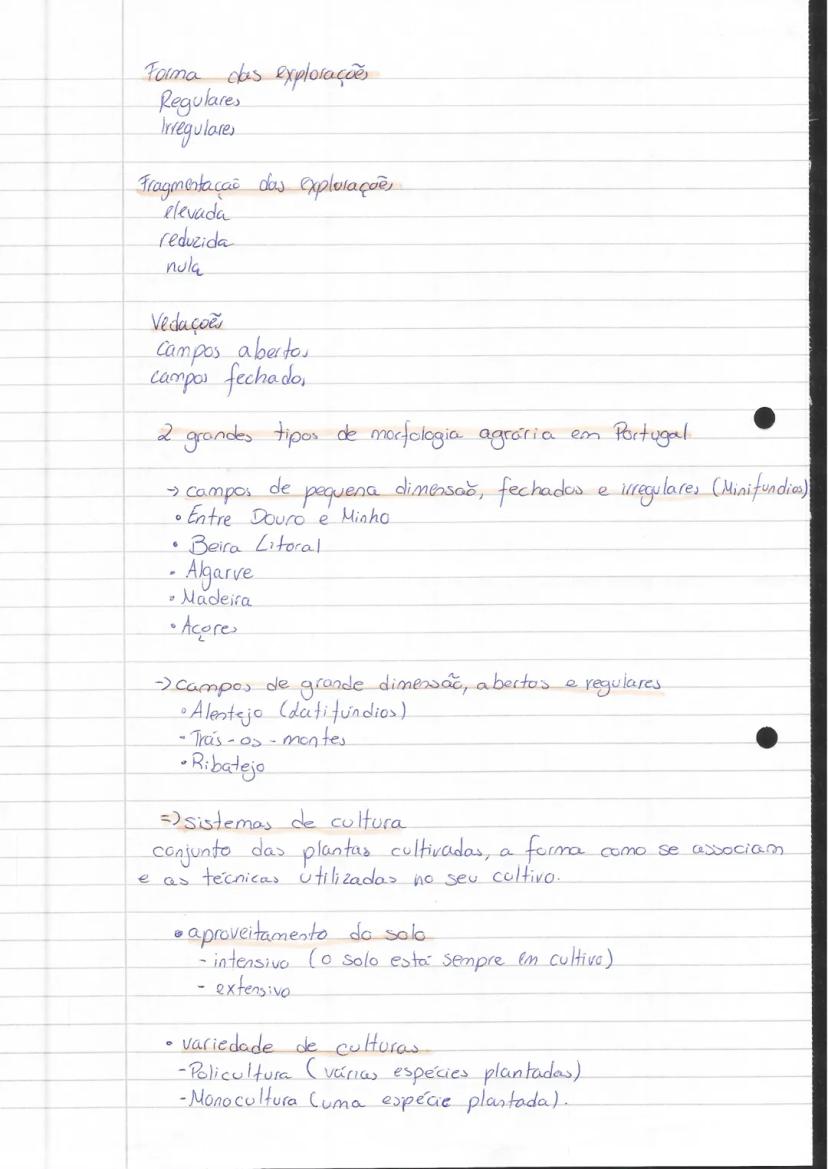 Forma das explorações
Regulares
Irregulares
Fragmentação das explorações
elevada
reduzida
nula
Vedações
Campos abertos
campos fechados
2 grandes tipos de morfologia agrária em Portugal
→ campos de pequena dimensão, fechados e irregulares (Minifundios)
• Entre Douro e Minho
• Beira Litoral
• Algarve
• Madeira
• Açores
→ campos de grande dimensão, abertos e regulares
• Alentejo (Latifúndios)
• Trás-os-montes
• Ribatejo
⇒ sistemas de cultura
conjunto das plantas cultivadas, a forma como se associam
e as técnicas utilizadas no seu cultivo.
• aproveitamento do solo
- intensivo (o solo está sempre em cultivo)
- extensivo
• variedade de culturas
- Policultura (várias espécies plantadas)
- Monocultura (uma espécie plantada).